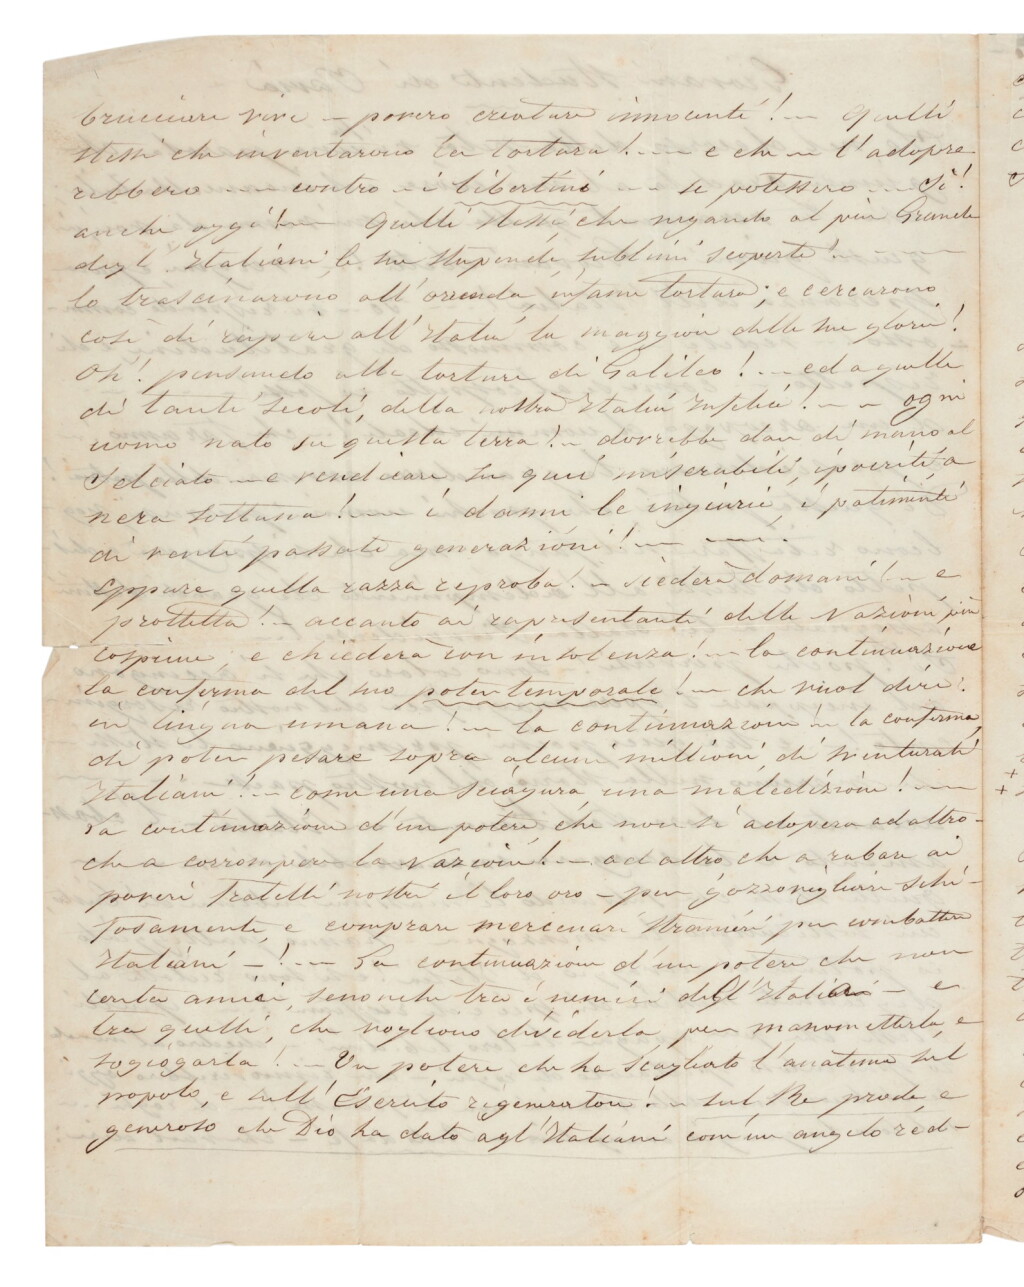 bruciare vive — povere creature innocenti! — Quelli
stessi che inventarono la tortura! — — e che — l'adopre
rebbero — — contro — i libertini — — se potessero — — Sì!
anche oggi! — — Quelli stessi che negando al più Grande
degl' Italiani le sue stupende, sublimi scoperte!
lo trascinarono all'orrenda, infame tortura; e cercarono
così di rapire all'Italia la maggiore delle sue glorie!
Oh! pensando alle torture di Galileo! — ed a quelle
di tanti secoli, della nostra Italia infelice! — — ogni
uomo nato su questa terra! — dovrebbe dare di mano al
selciato — e vendicare su quei miserabili, ipocriti, a
nera sottana! — — i danni le ingiurie, i patimenti
di venti passate generazioni! — — —
Eppure quella razza reproba! — siederà domani! — e
protetta! — accanto ai rapresentanti delle Nazioni più
cospicue, e chiederà con insolenza! — la continuazione
la conferma del suo poter temporale! — che vuol dire:
in lingua umana! — la continuazione! — la conferma,
di poter pesare sopra alcuni millioni, di sventurati
Italiani! — come una sciagura una maledizione! — —
La continuazione d'un potere, che non si adopera ad altro-
che a corrompere la Nazione! — ad altro che a rubare ai
poveri Fratelli nostri il loro oro — per gozzovigliare schi-
fosamente, e comprare mercenari stranieri per combattere
Italiani — ! — La continuazione d'un potere che non
conta amici, senonché tra i nemici dell'Italia — e
tra quelli, che vogliono dividerla per manometterla, e
sogiogarla! — Un potere che ha scagliato l'anatema sul
popolo, e sull'Esercito rigeneratore! — sul Re prode, e
generoso che Dio ha dato agl'Italiani com'un angelo red-